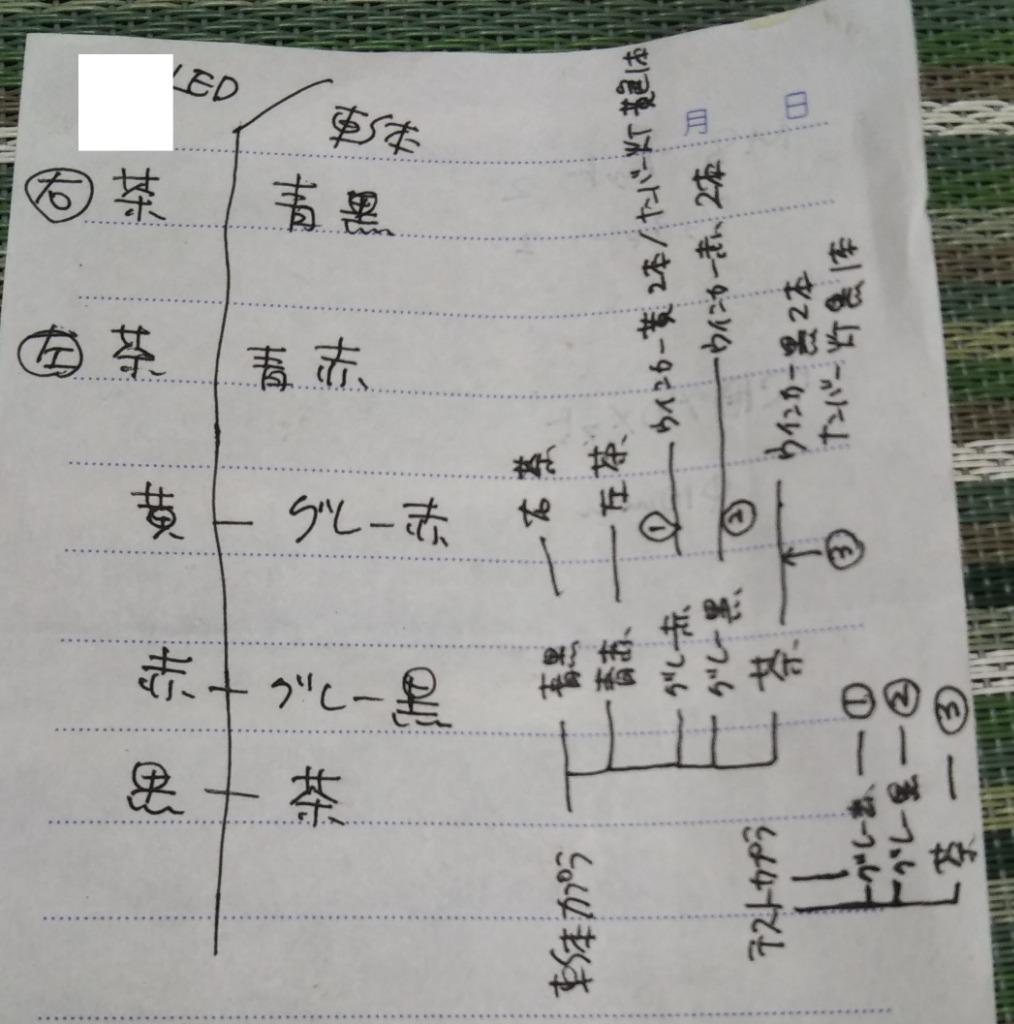 LED 車体
右 茶 青黒
左 茶 青赤
黄 ー グレー赤
赤 ー グレー黒
黒 ー 茶
車体カプラ
青黒 ー 右 茶
青赤 ー 左 茶
グレー赤 ① ー ウインカー黄2本/ナンバー灯黄色1本
グレー黒 ② ー ウインカー赤2本
茶 ③ ー ウインカー黒2本
ナンバー灯黒1本
テストカプラ
グレー赤 ー ①
グレー黒 ー ②
茶 ー ③
月 日